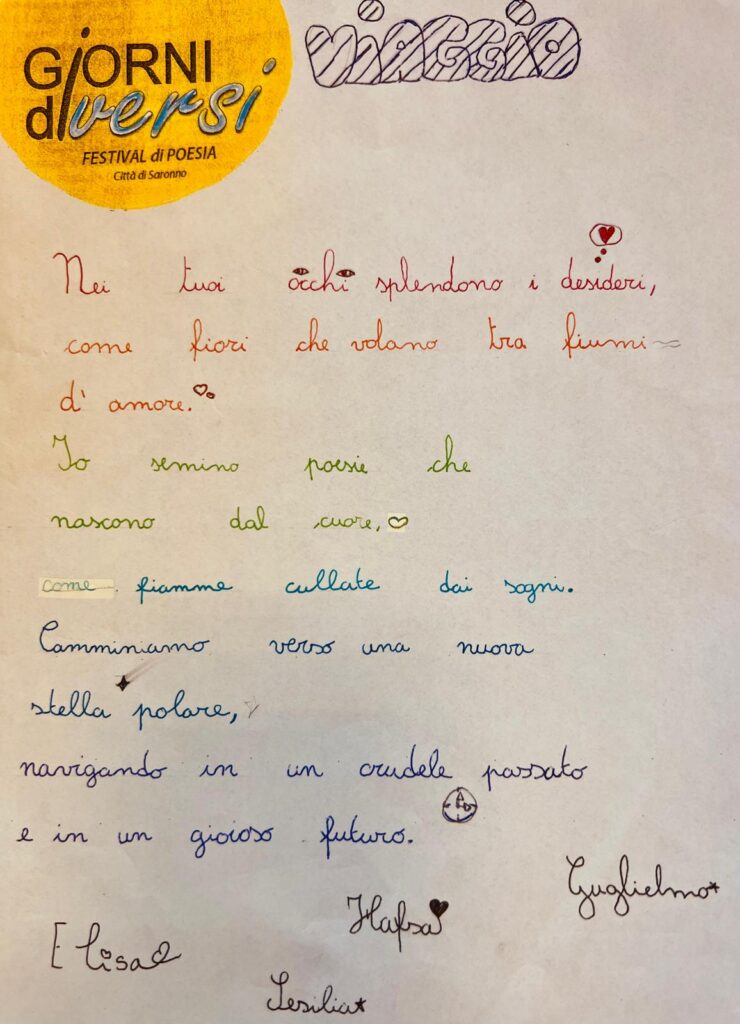 GiORNI
diversi
FESTIVAL di POESIA
Città di Saronno
ViAGGiO
Nei tuoi occhi splendono i desideri,
come fiori che volano tra fiumi
d' amore.
Io semino poesie che
nascono dal cuore,
come fiamme cullate dai sogni.
Camminiamo verso una nuova
stella polare,
navigando in un crudele passato
e in un gioioso futuro.
Guglielmo
Hafsa
Elisa
Sesilia